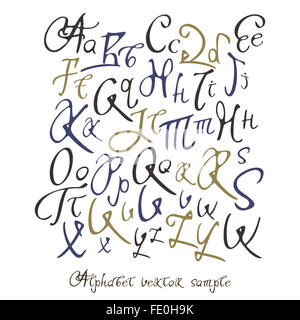 Aa Bb Cc Dd Ee
Ff Gg Hh Ii Jj
Kk Ll Mm Nn
Oo Pp Qq Rr Ss
Tt Uu Vv Ww
Xx Yy Zz
Alphabet vector sample
alamy
FE0H9K